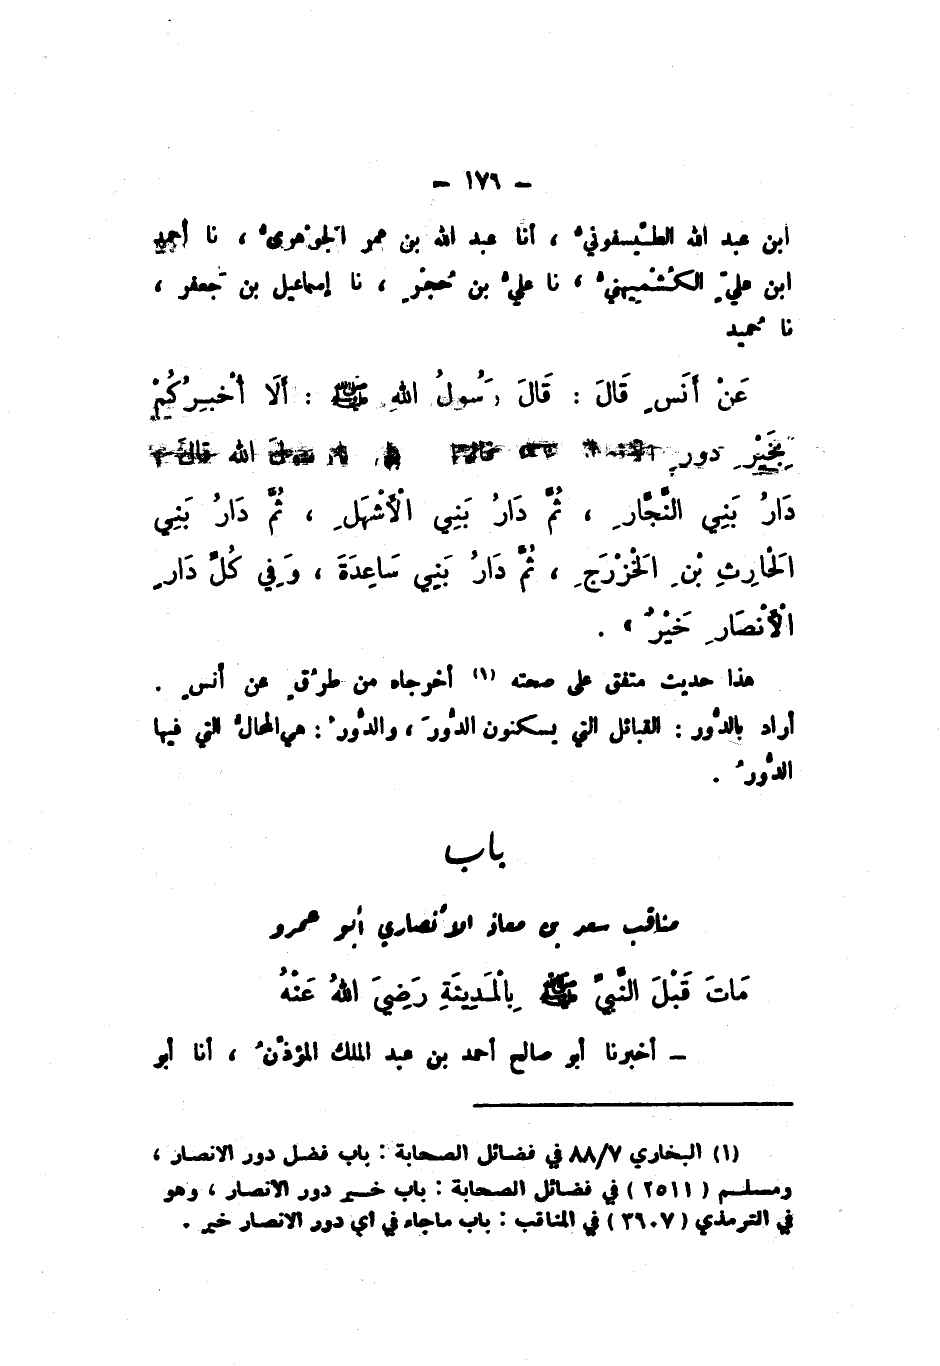 – ١٧٦ –
ابن عبد الله الطَّيسفونيُّ ، أنا عبد الله بن عمر الجَوْهريُّ ، نا أحمد
ابن عليٍّ الكُشْمِيهنيُّ ، نا عليُّ بن حُجْرٍ ، نا إسماعيل بن جَعفر ،
نا حُميد
عَنْ أَنَسٍ قَالَ : قَالَ رَسُولُ اللهِ ﷺ : أَلَا أُخْبِرُكُمْ
بِخَيْرِ دورِ الله قال
دَارُ بَنِي النَّجَّارِ ، ثُمَّ دَارُ بَنِي الْأَشْهَلِ ، ثُمَّ دَارُ بَنِي
الْحَارِثِ بْنِ الخَزْرَجِ ، ثُمَّ دَارُ بَنِي سَاعِدَةَ ، وَفِي كُلِّ دَارِ
الْأَنْصَارِ خَيْرٌ » .
هذا حديث متفق على صحته (١) أخرجاه من طرُقٍ عن أنسٍ .
أراد بالدُّور : القبائل التي يسكنون الدُّورَ ، والدُّورُ : هي المحالُّ التي فيها
الدُّورُ .
باب
مناقب سعد بن معاذ الأنصاري أبو عمرو
مَاتَ قَبْلَ النَّبِيِّ ﷺ بِالْمَدِينَةِ رَضِيَ اللهُ عَنْهُ
– أخبرنا أبو صالح أحمد بن عبد الملك المؤذّنُ ، أنا أبو
(١) البخاري ٨٨/٧ في فضائل الصحابة : باب فضل دور الانصار ،
ومسلم ( ٢٥١١ ) في فضائل الصحابة : باب خير دور الانصار ، وهو
في الترمذي ( ٣٩٠٧ ) في المناقب : باب ماجاء في أي دور الانصار خير .